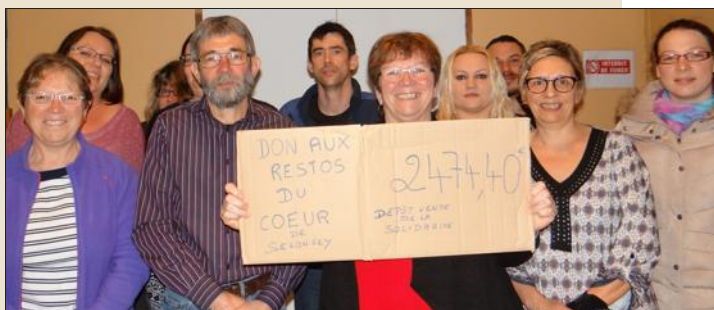 INTERDIT
DE FUMER
DON AUX
RESTOS
DU
COEUR
DE
SELONGEY
2474,40€
DEPÔT VENTE
DE LA
SOLIDARITE